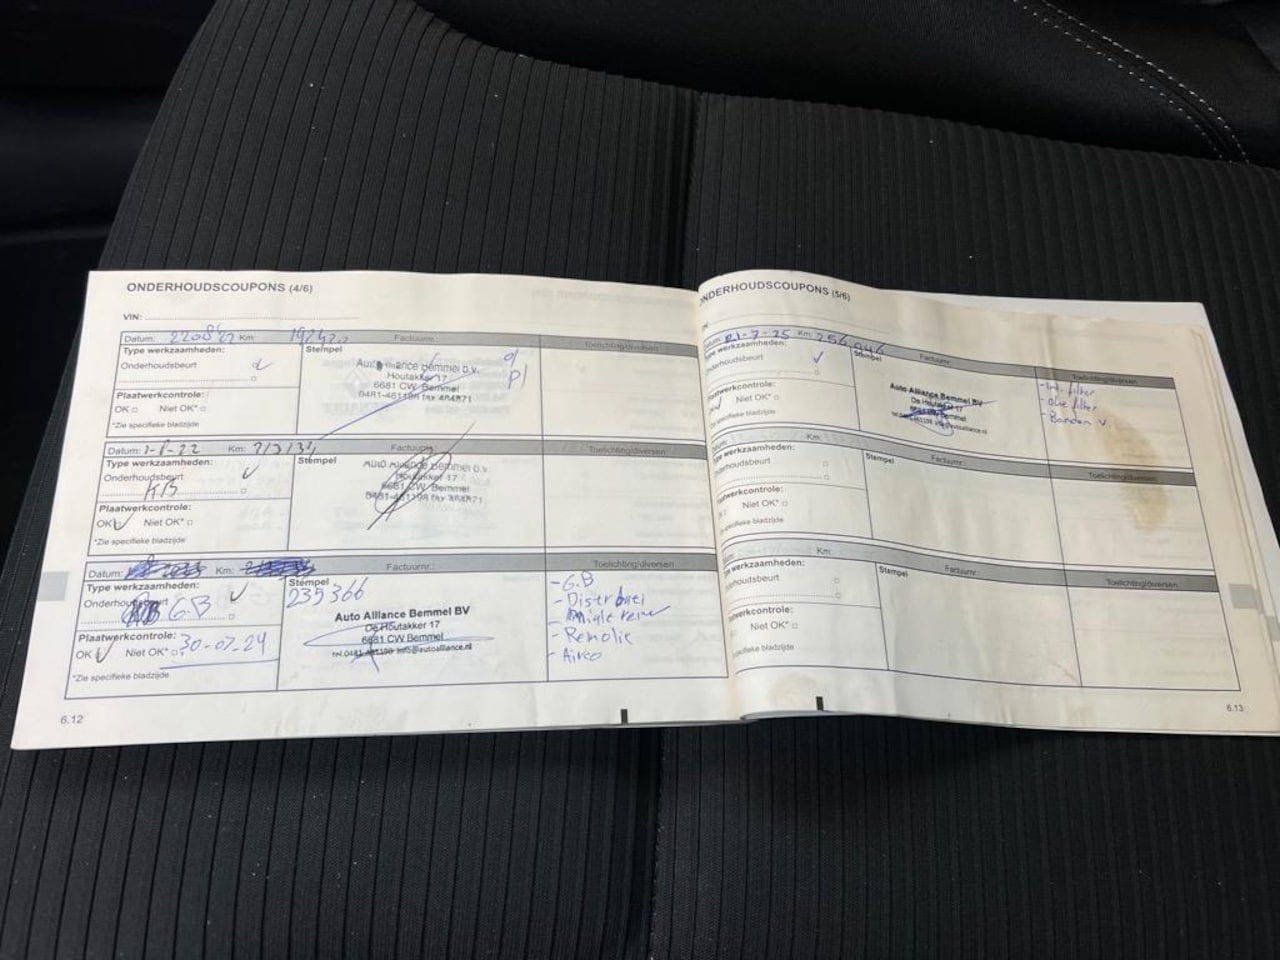 ONDERHOUDSCOUPONS (4/6)
VIN:
Datum: Km: Factuurnr.: Toelichting/diversen
Type werkzaamheden: Stempel
Onderhoudsbeurt
Auto Alliance Bemmel b.v.
Houtakker 17
6681 CW Bemmel
Plaatwerkcontrole:
OK Niet OK*
*Zie specifieke bladzijde
Datum: 1-8-22 Km: Factuurnr. Toelichting/diversen
Type werkzaamheden: Stempel
Onderhoudsbeurt
KB
Auto Alliance Bemmel b.v.
Houtakker 17
6681 CW Bemmel
Plaatwerkcontrole:
OK Niet OK*
*Zie specifieke bladzijde
Datum: Km: Factuurnr.: Toelichting/diversen
Type werkzaamheden: Stempel
235366
Onderhoudsbeurt
G.B
Auto Alliance Bemmel BV
De Houtakker 17
6681 CW Bemmel
Plaatwerkcontrole:
OK Niet OK* 30-07-24
*Zie specifieke bladzijde
- G.B
- Remolie
- Airco
6.12
ONDERHOUDSCOUPONS (5/6)
Datum: 21-7-25 Km: 256046 Factuurnr. Toelichting/diversen
Type werkzaamheden: Stempel
Onderhoudsbeurt
Auto Alliance Bemmel BV
De Houtakker 17
6681 CW Bemmel
- Int. filter
- Olie filter
- Banden V.
Plaatwerkcontrole:
Niet OK*
*Zie specifieke bladzijde
Km: Factuurnr. Toelichting/diversen
Type werkzaamheden: Stempel
Onderhoudsbeurt
Plaatwerkcontrole:
Niet OK*
*Zie specifieke bladzijde
Km: Factuurnr. Toelichting/diversen
Type werkzaamheden: Stempel
Onderhoudsbeurt
Plaatwerkcontrole:
Niet OK*
*Zie specifieke bladzijde
6.13